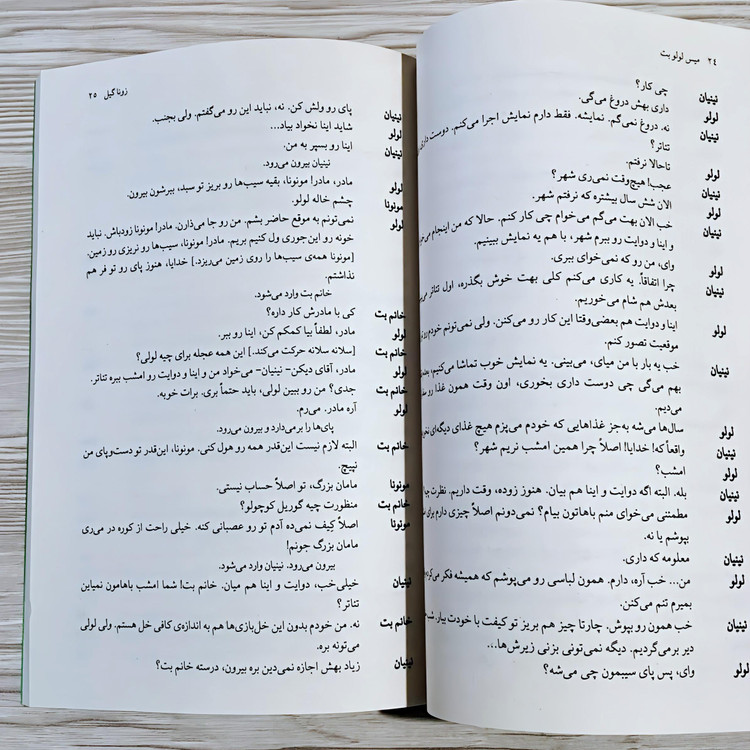 ۲۴ میس لولو بت
نینیان چی کار؟
لولو داری بهش دروغ می‌گی.
نینیان نه. دروغ نمی‌گم. نمایشه. فقط دارم نمایش اجرا می‌کنم. دوست داری
تئاتر؟
لولو تاحالا نرفتم.
نینیان عجب! هیچ‌وقت نمی‌ری شهر؟
لولو الان شش سال بیشتره که نرفتم شهر.
نینیان خب الان بهت می‌گم می‌خوام چی کار کنم. حالا که من اینجام
و اینا و دوایت رو ببرم شهر، با هم یه نمایش ببینیم.
لولو وای، من رو که نمی‌خوای ببری.
نینیان چرا اتفاقاً. یه کاری می‌کنم کلی بهت خوش بگذره، اول تئاتر
بعدش هم شام می‌خوریم.
لولو اینا و دوایت هم بعضی‌وقتا این کار رو می‌کنن. ولی نمی‌تونم خودم رو
موقعیت تصور کنم.
نینیان خب یه بار با من میای، می‌بینی. یه نمایش خوب تماشا می‌کنیم،
بهم می‌گی چی دوست داری بخوری، اون وقت همون غذا رو
می‌دیم.
لولو سال‌ها می‌شه به‌جز غذاهایی که خودم می‌پزم هیچ غذای دیگه‌ای
نینیان واقعاً که! خدایا! اصلاً چرا همین امشب نریم شهر؟
لولو امشب؟
نینیان بله. البته اگه دوایت و اینا هم بیان. هنوز زوده، وقت داریم. نظرت
لولو مطمئنی می‌خوای منم باهاتون بیام؟ نمی‌دونم اصلاً چیزی دارم
بپوشم یا نه.
نینیان معلومه که داری.
لولو من... خب آره، دارم. همون لباسی رو می‌پوشم که همیشه فکر
بمیرم تنم می‌کنن.
نینیان خب همون رو بپوش. چارتا چیز هم بریز تو کیفت با خودت بیار.
دیر برمی‌گردیم. دیگه نمی‌تونی بزنی زیرش‌ها...
لولو وای، پس پای سیبمون چی می‌شه؟
زونا گیل ۲۵
نینیان پای رو ولش کن. نه، نباید این رو می‌گفتم. ولی بجنب.
لولو شاید اینا نخواد بیاد...
نینیان اینا رو بسپر به من.
نینیان بیرون می‌رود.
لولو مادر، مادر! مونونا، بقیه سیب‌ها رو بریز تو سبد، ببرشون بیرون.
مونونا چشم خاله لولو.
لولو نمی‌تونم به موقع حاضر بشم. من رو جا می‌ذارن. مادر! مونونا زودباش. نباید
خونه رو این‌جوری ول کنیم بریم. مادر! مونونا، سیب‌ها رو نریزی رو زمین.
[مونونا همه‌ی سیب‌ها را روی زمین می‌ریزد.] خدایا، هنوز پای رو تو فر هم
نذاشتم.
خانم بت وارد می‌شود.
خانم بت کی با مادرش کار داره؟
لولو مادر، لطفاً بیا کمکم کن، اینا رو ببر.
خانم بت [سلانه سلانه حرکت می‌کند.] این همه عجله برای چیه لولی؟
لولو مادر، آقای دیکن- نینیان- می‌خواد من و اینا و دوایت رو امشب ببره تئاتر.
خانم بت جدی؟ من رو ببین لولی، باید حتماً بری. برات خوبه.
لولو آره مادر. می‌رم.
پای‌ها را برمی‌دارد و بیرون می‌رود.
خانم بت البته لازم نیست این‌قدر همه رو هول کنی. مونونا، این‌قدر تو دست‌وپای من
نپیچ.
مونونا مامان بزرگ، تو اصلاً حساب نیستی.
خانم بت منظورت چیه گوریل کوچولو؟
مونونا اصلاً کیف نمی‌ده آدم تو رو عصبانی کنه. خیلی راحت از کوره در می‌ری
مامان بزرگ جونم!
بیرون می‌رود. نینیان وارد می‌شود.
نینیان خیلی‌خب، دوایت و اینا هم میان. خانم بت! شما امشب باهامون نمیاین
تئاتر؟
خانم بت نه. من خودم بدون این خل‌بازی‌ها هم به اندازه‌ی کافی خل هستم. ولی لولی
می‌تونه بره.
نینیان زیاد بهش اجازه نمی‌دین بره بیرون، درسته خانم بت؟